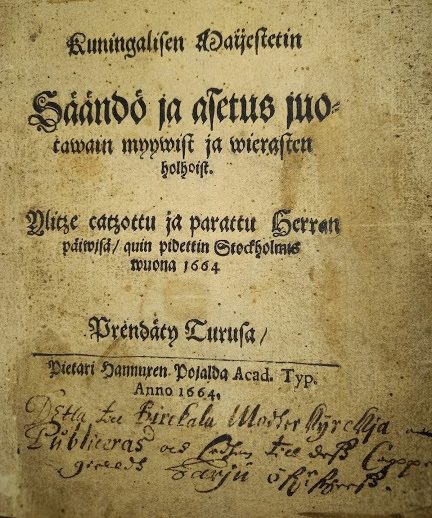 Kuningalisen Maijestetin
Säändö ja asetus juo=
tawain myywist ja wierasten
holhoist.
Ylitze catzottu ja parattu Herran
päiwisä/ quin pidettin Stockholmis
wuona 1664
Prendäty Turusa/
Pietari Hannuxen Pojalda Acad. Typ.
Anno 1664.
Detta till Birckala Moder Kyrckja
Publiceras och sedhan till dess Cappe
Harju